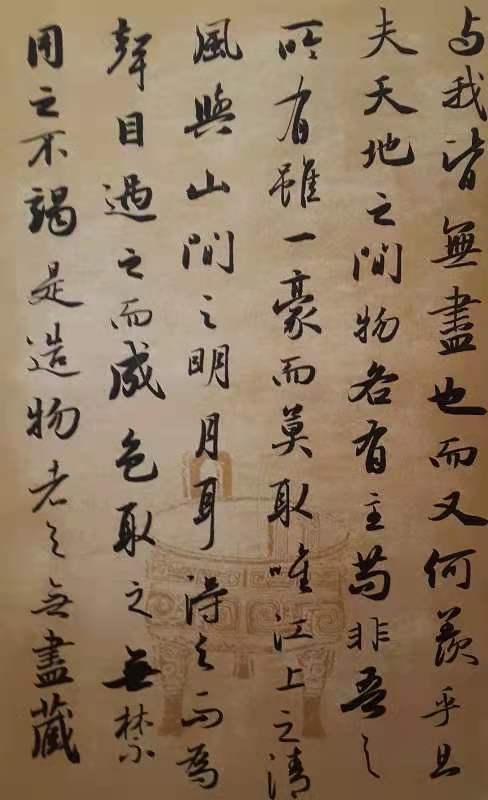 与我皆無盡也而又何羨乎且
夫天地之間物各有主苟非吾之
所有雖一豪而莫取唯江上之清
風與山間之明月耳得之而為
聲目遇之而成色取之無禁
用之不竭是造物者之無盡藏